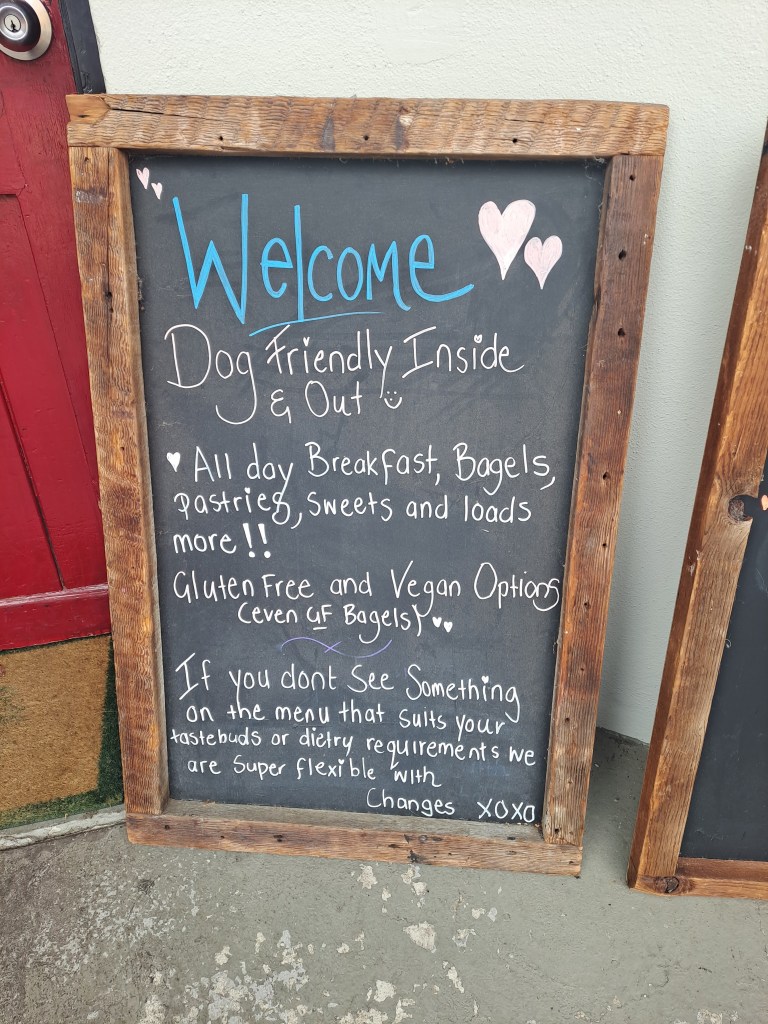 Welcome
Dog Friendly Inside
& Out
All day Breakfast, Bagels,
pastries, Sweets and loads
more!!
Gluten Free and Vegan Options
(even GF Bagels)
If you dont See Something
on the menu that suits your
tastebuds or dietry requirements we
are Super flexible with
Changes XOXO